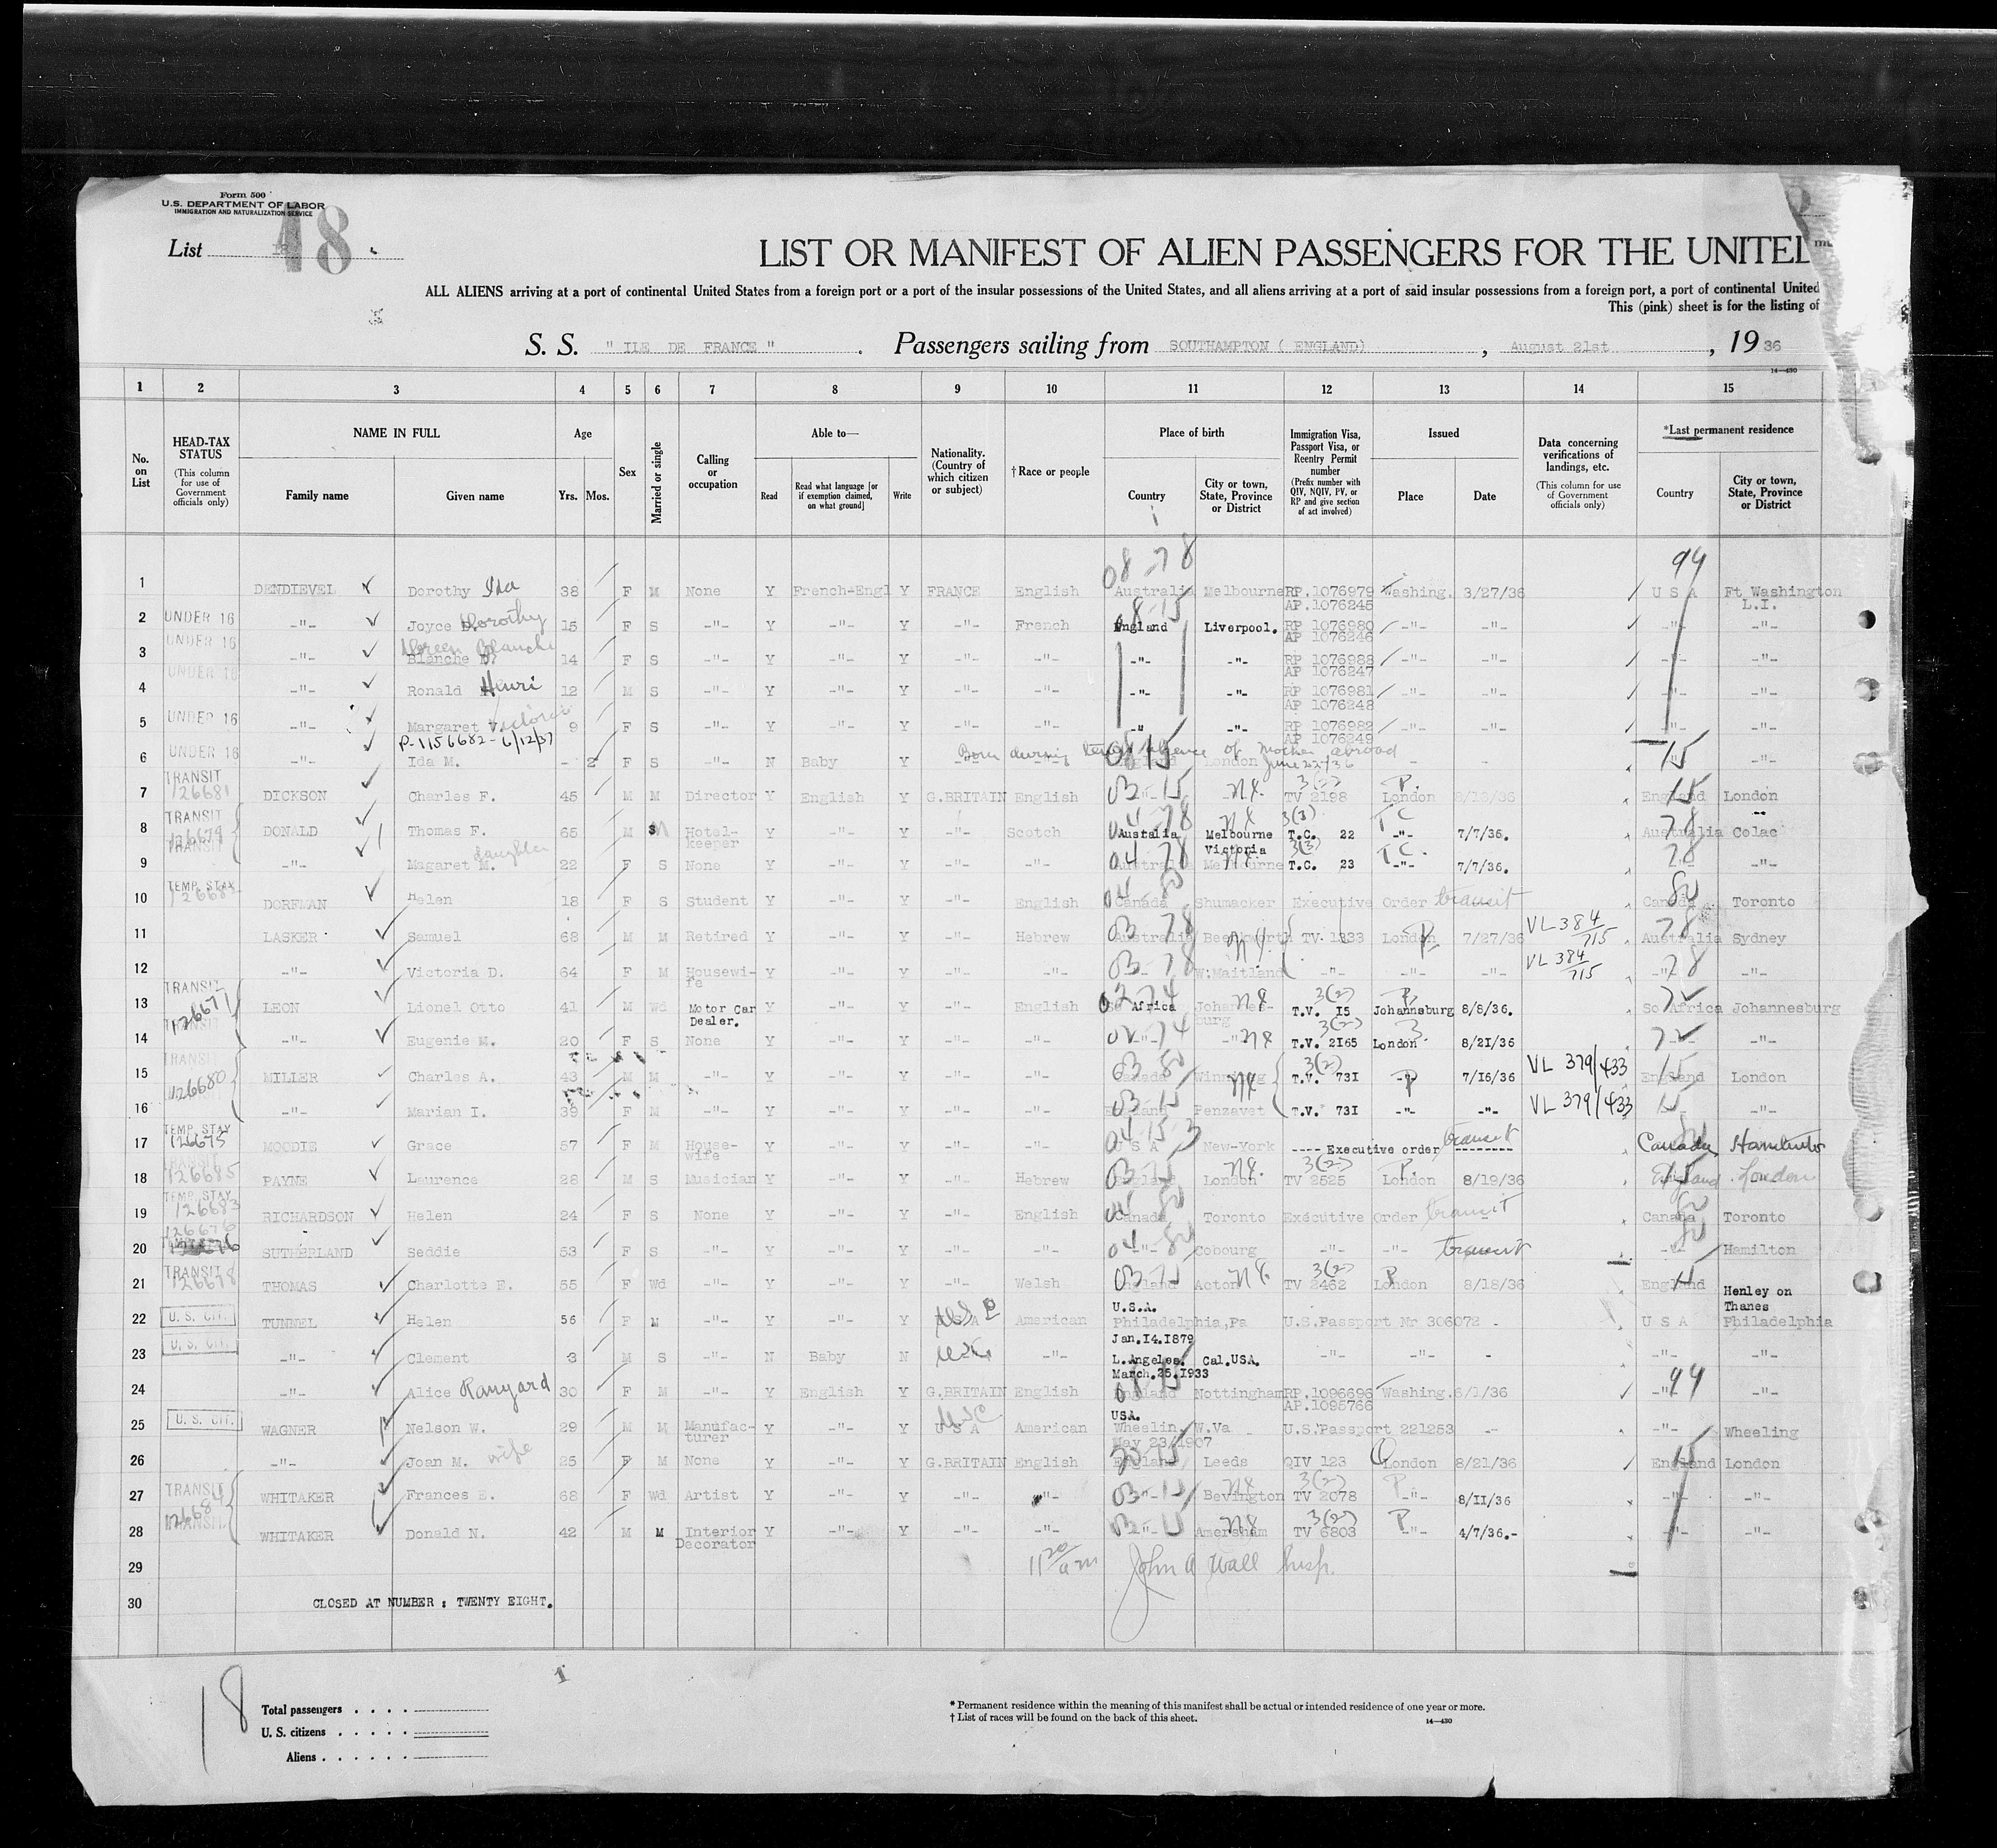 Form 500
U.S. DEPARTMENT OF LABOR
IMMIGRATION AND NATURALIZATION SERVICE
List 18
LIST OR MANIFEST OF ALIEN PASSENGERS FOR THE UNITE
ALL ALIENS arriving at a port of continental United States from a foreign port or a port of the insular possessions of the United States, and all aliens arriving at a port of said insular possessions from a foreign port, a port of continental United
This (pink) sheet is for the listing of
S. S. " ILE DE FRANCE " . Passengers sailing from SOUTHAMPTON ( ENGLAND) , August 21st , 19 36
14—430
1 2 3 4 5 6 7 8 9 10 11 12 13 14 15
No. on List
HEAD-TAX STATUS (This column for use of Government officials only)
NAME IN FULL Family name Given name
Age Yrs. Mos.
Sex
Married or single
Calling or occupation
Able to— Read Read what language [or if exemption claimed, on what ground] Write
Nationality. (Country of which citizen or subject)
† Race or people
Place of birth Country City or town, State, Province or District
Immigration Visa, Passport Visa, or Reentry Permit number (Prefix number with QIV, NQIV, PV, or RP and give section of act involved)
Issued Place Date
Data concerning verifications of landings, etc. (This column for use of Government officials only)
*Last permanent residence Country City or town, State, Province or District
08-78 94
1 DENDIEVEL Dorothy Ida 38 F M None Y French-Engl Y FRANCE English Australia Melbourne RP.1076979 Washing. 3/27/36 U S A Ft Washington
AP.1076245 L.I.
2 UNDER 16 -"- Joyce Dorothy 15 F S -"- Y -"- Y -"- French England Liverpool. RP 1076980 -"- -"- -"- -"-
AP 1076246
3 UNDER 16 -"- Blanche D. Doreen Blanche 14 F S -"- Y -"- Y -"- -"- -"- -"- RP 1076988 -"- -"- -"- -"-
AP 1076247
4 UNDER 16 -"- Ronald Henri 12 M S -"- Y -"- Y -"- -"- -"- -"- RP 1076981 -"- -"- -"- -"-
AP 1076248
5 UNDER 16 -"- Margaret Victoria 9 F S -"- Y -"- Y -"- -"- -"- -"- RP 1076982 -"- -"- -"- -"-
AP 1076249
P-1156682-6/12/37
Born during temp absence of mother abroad
6 UNDER 16 -"- Ida M. - 2 F S -"- N Baby Y England London June 22/36 15
7 TRANSIT 126681 DICKSON Charles F. 45 M M Director Y English Y G.BRITAIN English 03-15 TV 2198 3(2) London P. 8/18/36 England London
8 TRANSIT 126679 DONALD Thomas F. 65 M Hotel-keeper Y -"- Y -"- Scotch Austalia Melbourne Victoria T.C. 22 3(3) -"- TC 7/7/36. Australia Colac
9 TRANSIT -"- Magaret M. daughter 22 F S None Y -"- Y -"- -"- 04-78 Australia Melbourne T.C. 23 3(3) -"- TC. 7/7/36. -"- -"-
10 TEMP. STAY DORFMAN Helen 18 F S Student Y -"- Y -"- English 04-80 Canada Shumacker Executive Order transit Canada 80 Toronto
11 LASKER Samuel 68 M M Retired Y -"- Y -"- Hebrew 03-78 Australia TV. 1933 London P 7/27/36 VL 384/715 Australia 78 Sydney
12 -"- Victoria D. 64 F M Housewi-fe Y -"- Y -"- -"- 03-78 W.Maitland -"- -"- -"- VL 384/715 -"- 78 -"-
13 TRANSIT 126677 LEON Lionel Otto 41 M Wd Motor Car Dealer. Y -"- Y -"- English Africa Johannes-burg T.V. 15 3(2) Johannsburg P. 8/8/36. So Africa Johannesburg
14 TRANSIT -"- Eugenie M. 20 F S None Y -"- Y -"- -"- 02-74 -"- -"- T.V. 2165 3(2) London 8/21/36
15 TRANSIT 126680 MILLER Charles A. 43 M M -"- Y -"- Y -"- -"- 03-80 Canada Winnipeg T.V. 731 3(2) -"- P 7/16/36 VL 379/433 England 15 London
16 -"- Marian I. 39 F M -"- Y -"- Y -"- -"- 03-15 England Penzavet T.V. 731 -"- -"- VL 379/433 15 -"-
17 TEMP. STAY 126675 MOODIE Grace 57 F M House-wife Y -"- Y -"- -"- U S A New-York ---- Executive order -------- transit Canada
18 TRANSIT 126685 PAYNE Laurence 28 M S Musician Y -"- Y -"- Hebrew 03-15 England London TV 2525 3(2) London P. 8/19/36 England London
19 TEMP. STAY 126683 RICHARDSON Helen 24 F S None Y -"- Y -"- English Canada Toronto Executive Order transit Canada 80 Toronto
20 126676 SUTHERLAND Seddie 53 F S -"- Y -"- Y -"- -"- 04-80 -"- Cobourg -"- -"- transit -"- 80 Hamilton
21 TRANSIT 126678 THOMAS Charlotte E. 55 F Wd -"- Y -"- Y -"- Welsh 03-15 England Acton TV 2462 3(2) London P 8/18/36 England 15 Henley on Thanes
22 U. S. CIT. TUNNEL Helen 56 F M -"- Y -"- Y U S A American U.S.A. Philadelphia,Pa Jan.14.1879 U.S.Passport Nr 306072 - U S A Philadelphia
23 U. S. CIT. -"- Clement 3 M S -"- N Baby N -"- L.Angeles. Cal.USA. March.25.1933 -"- -"- - -"- -"-
24 -"- Alice Ranyard 30 F M -"- Y English Y G.BRITAIN English England Nottingham RP.1096696 Washing. 6/1/36 -"- 94 -"-
AP.1095766
25 U. S. CIT. WAGNER Nelson W. 29 M M Manufac-turer Y -"- Y U S A American USA. Wheelin, W.Va May 23/1907 U.S.Passport 221253 -- -"- Wheeling
26 -"- Joan M. wife 25 F M None Y -"- Y G.BRITAIN English England Leeds QIV 123 London 8/21/36 England 15 London
27 TRANSIT 126684 WHITAKER Frances E. 68 F Wd Artist Y -"- Y -"- -"- 03-15 Bevington TV 2078 3(2) -"- P 8/11/36 -"- -"-
28 TRANSIT WHITAKER Donald N. 42 M M Interior Decorator Y -"- Y -"- -"- Amersham TV 6803 3(2) -"- P 4/7/36.- -"- -"-
29 11 20/am John A Wall Insp.
30 CLOSED AT NUMBER : TWENTY EIGHT.
18
Total passengers . . . .
U. S. citizens . . . . .
Aliens . . . . . .
* Permanent residence within the meaning of this manifest shall be actual or intended residence of one year or more.
† List of races will be found on the back of this sheet.
14—430